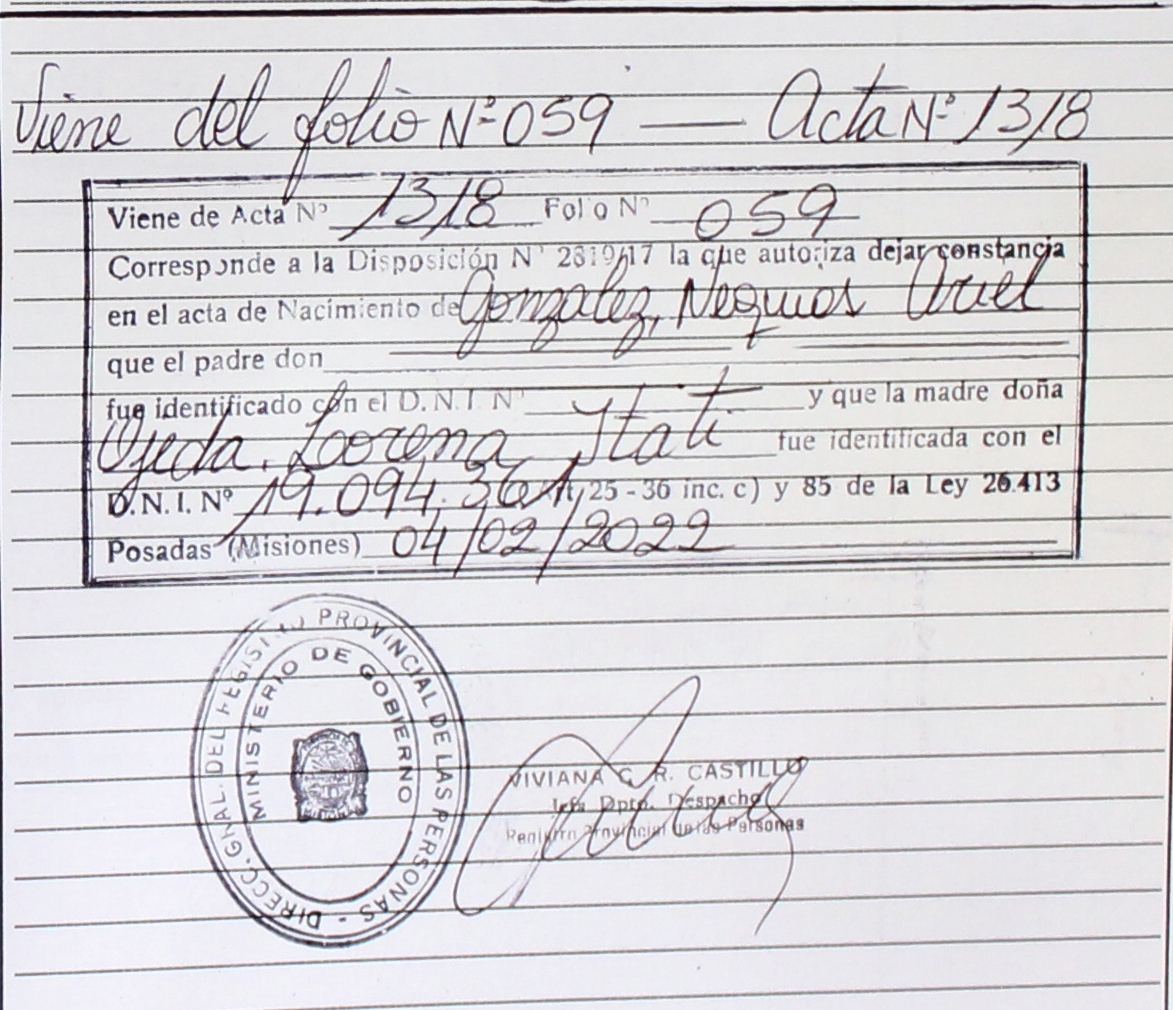 Viene del folio Nº 059 — Acta Nº 1318
Viene de Acta Nº 1318 Folio Nº 059
Corresponde a la Disposición Nº 2819/17 la que autoriza dejar constancia
en el acta de Nacimiento de Gonzalez, Nequios Ariel
que el padre don
fue identificado con el D.N.I. Nº y que la madre doña
Ojeda, Lorena Itati fue identificada con el
D.N.I. Nº 19.094.361 25-36 inc. c) y 85 de la Ley 26.413
Posadas (Misiones) 04/02/2022
DIRECC. GRAL. DEL REGISTRO PROVINCIAL DE LAS PERSONAS -
MINISTERIO DE GOBIERNO
VIVIANA C. R. CASTILLO
Jefa Dpto. Despacho
Registro Provincial de las Personas